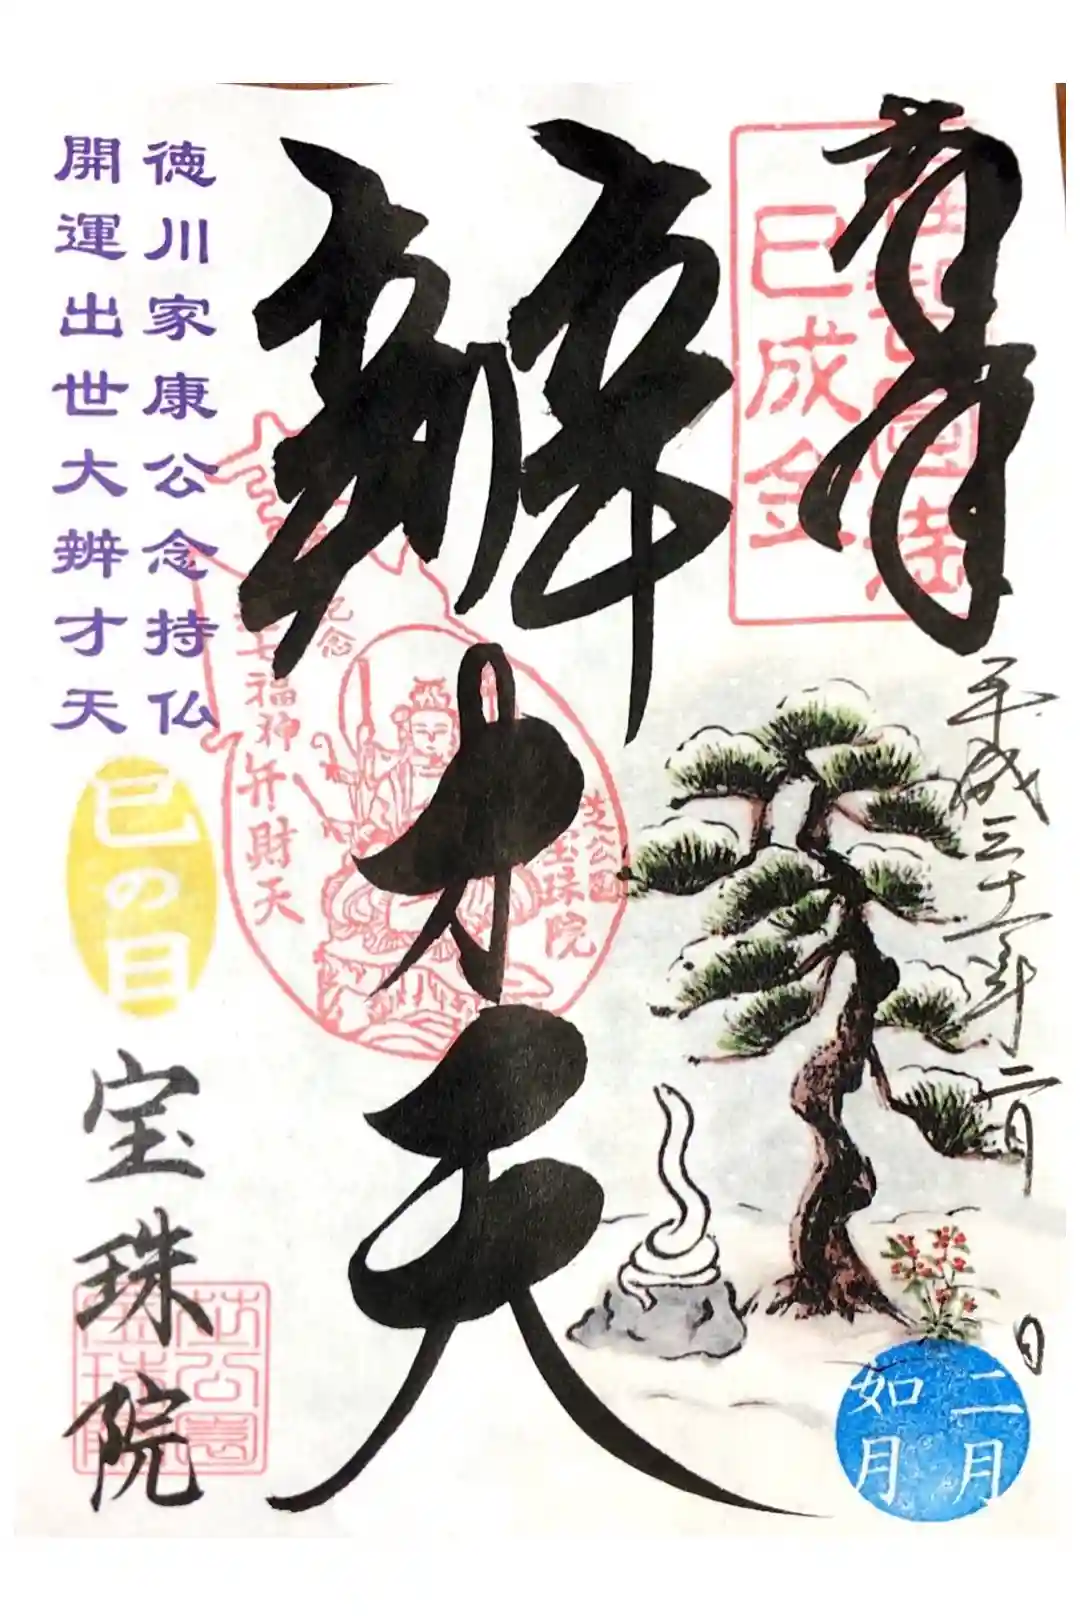 奉拝
巳成金
平成三十一年二月
日
二月
如月
辨才天
紀念
七福神弁財天
芝公園
宝珠院
徳川家康公念持仏
開運出世大辨才天
巳の日
宝珠院
芝公園
宝珠院